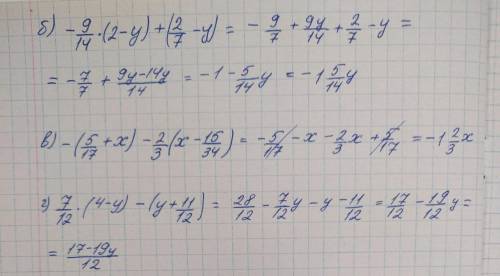 б) -9/14 · (2-y) + (2/7 - y) = -9/7 + 9y/14 + 2/7 - y =
= -7/7 + 9y-14y/14 = -1 - 5/14 y = -1 5/14 y
в) -(5/17 + x) - 2/3 (x - 15/34) = -5/17 - x - 2/3 x + 5/17 = -1 2/3 x
г) 7/12 · (4-y) - (y + 11/12) = 28/12 - 7/12 y - y - 11/12 = 17/12 - 19/12 y =
= 17-19y/12